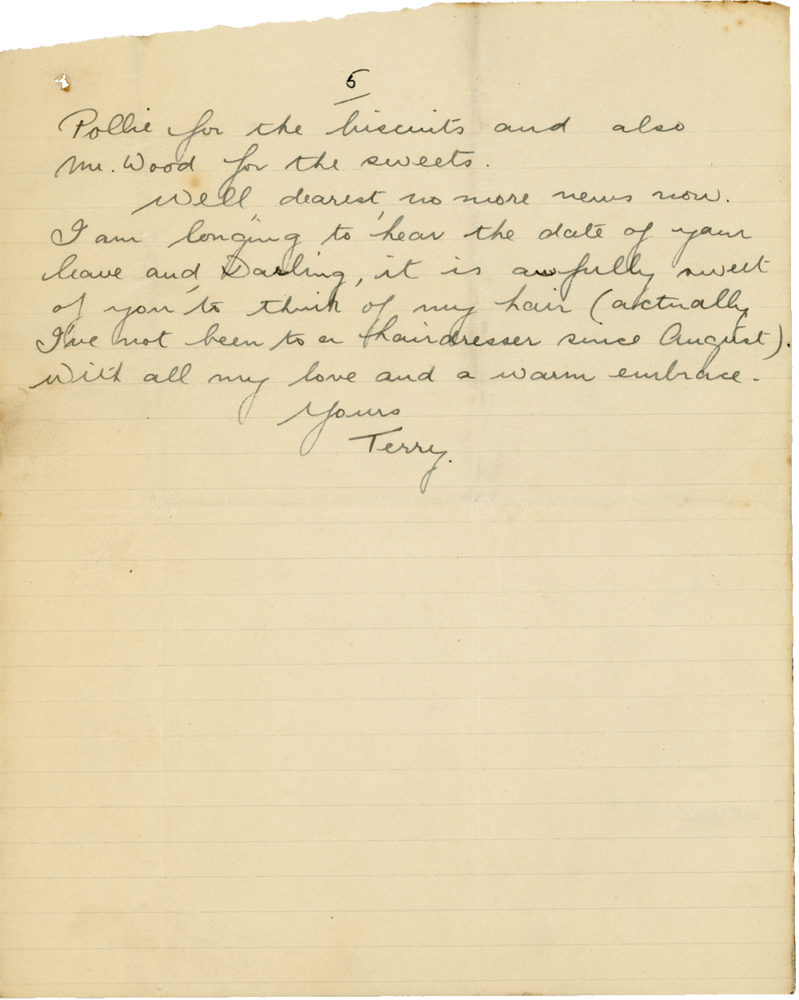 5
Pollie for the biscuits and also
Mr. Wood for the sweets.
Well dearest, no more news now.
I am longing to hear the date of your
leave and, Darling, it is awfully sweet
of you to think of my hair (actually
I've not been to a hairdresser since August).
With all my love and a warm embrace.
Yours
Terry.